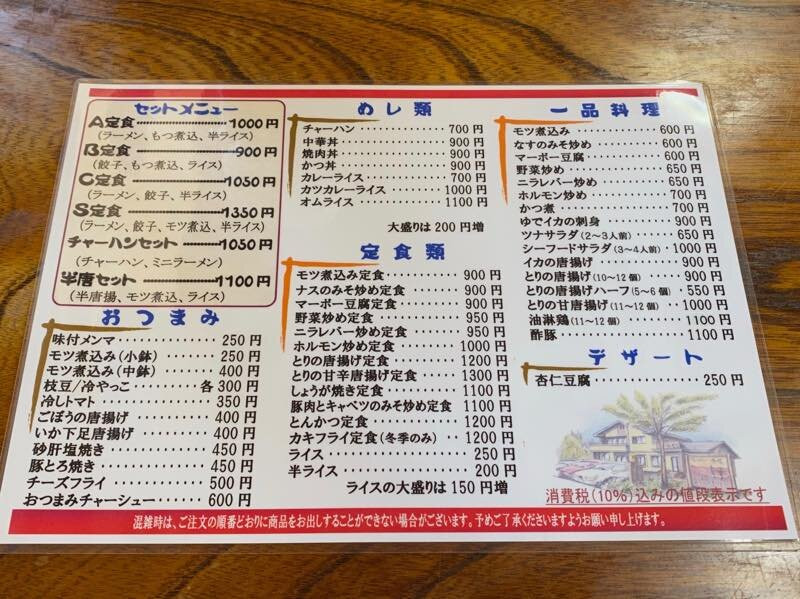 セットメニュー
A定食 1000円
(ラーメン、もつ煮込、半ライス)
B定食 900円
(餃子、もつ煮込、ライス)
C定食 1050円
(ラーメン、餃子、半ライス)
S定食 1350円
(ラーメン、餃子、モツ煮込、半ライス)
チャーハンセット 1050円
(チャーハン、ミニラーメン)
半唐セット 1100円
(半唐揚、モツ煮込、ライス)
おつまみ
味付メンマ 250円
モツ煮込み(小鉢) 250円
モツ煮込み(中鉢) 400円
枝豆/冷やっこ 各300円
冷しトマト 350円
ごぼうの唐揚げ 400円
いか下足唐揚げ 400円
砂肝塩焼き 450円
豚とろ焼き 450円
チーズフライ 500円
おつまみチャーシュー 600円
めし類
チャーハン 700円
中華丼 900円
焼肉丼 900円
かつ丼 900円
カレーライス 700円
カツカレーライス 1000円
オムライス 1100円
大盛りは200円増
定食類
モツ煮込み定食 900円
ナスのみそ炒め定食 900円
マーボー豆腐定食 900円
野菜炒め定食 950円
ニラレバー炒め定食 950円
ホルモン炒め定食 1000円
とりの唐揚げ定食 1200円
とりの甘辛唐揚げ定食 1300円
しょうが焼き定食 1100円
豚肉とキャベツのみそ炒め定食 1100円
とんかつ定食 1200円
カキフライ定食(冬季のみ) 1200円
ライス 250円
半ライス 200円
ライスの大盛りは150円増
一品料理
モツ煮込み 600円
なすのみそ炒め 600円
マーボー豆腐 600円
野菜炒め 650円
ニラレバー炒め 650円
ホルモン炒め 700円
かつ煮 700円
ゆでイカの刺身 900円
ツナサラダ(2～3人前) 650円
シーフードサラダ(3～4人前) 1000円
イカの唐揚げ 900円
とりの唐揚げ(10～12個) 900円
とりの唐揚げハーフ(5～6個) 550円
とりの甘唐揚げ(11～12個) 1000円
油淋鶏(11～12個) 1100円
酢豚 1100円
デザート
杏仁豆腐 250円
消費税(10%)込みの値段表示です
混雑時は、ご注文の順番どおりに商品をお出しすることができない場合がございます。予めご了承くださいますようお願い申し上げます。